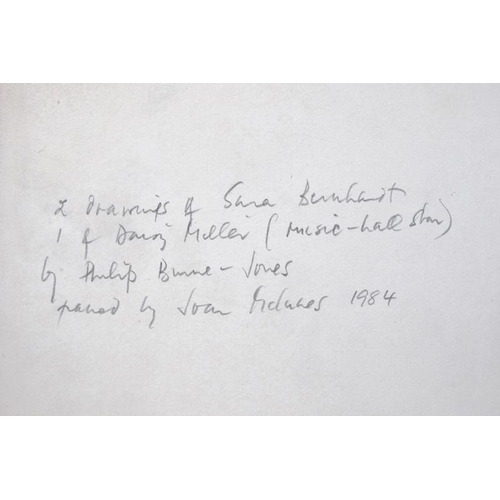 2 drawings of Sara Bernhardt
1 of Miller (music-hall star)
by Philip Burne-Jones
by Joan 1984